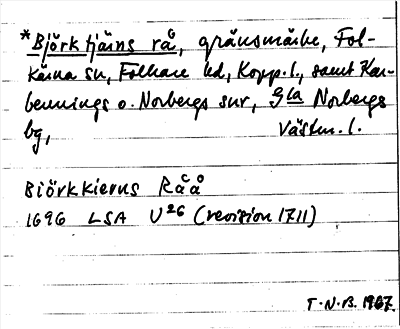 *Björktjärns rå, gränsmärke, Fol-
kärna sn, Folkare hd, Kopp. l., samt Kar-
bennings o. Norbergs snr, Gla Norbergs
bg, Västm. l.
Biörkkierns Råå
1696 LSA U26 (revision 1711)
T.N.B. 1967